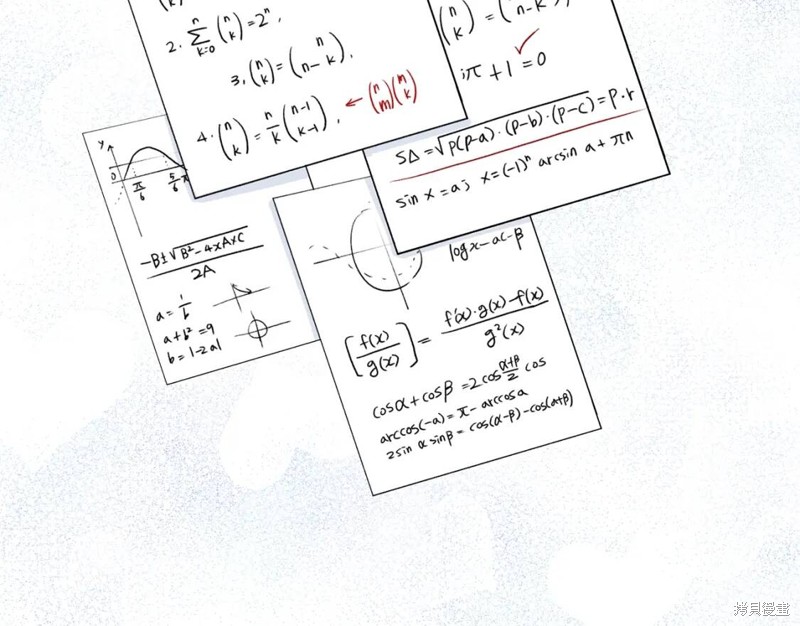 2. \sum_{k=0}^{n} \binom{n}{k} = 2^n,
3. \binom{n}{k} = \binom{n}{n-k},
4. \binom{n}{k} = \frac{n}{k} \binom{n-1}{k-1}, ← \binom{n}{m}\binom{m}{k}
\binom{n}{k} = \binom{n}{n-k},
iπ + 1 = 0
S∆ = √p(p-a)·(p-b)·(p-c) = p·r
sin x = a; x = (-1)^n arcsin a + πn
y
0
π/6
5/6 π
-B±√B²-4×A×C / 2A
a = 1/b
a+b² = 9
b = 1-2al
logx-ac-β
[f(x)/g(x)] = f'(x)·g(x)-f(x) / g²(x)
cosα + cosβ = 2cos α+β/2 cos
arccos(-a) = π - arccosa
2sin α sinβ = cos(α-β)-cos(α+β)
拷貝漫畫